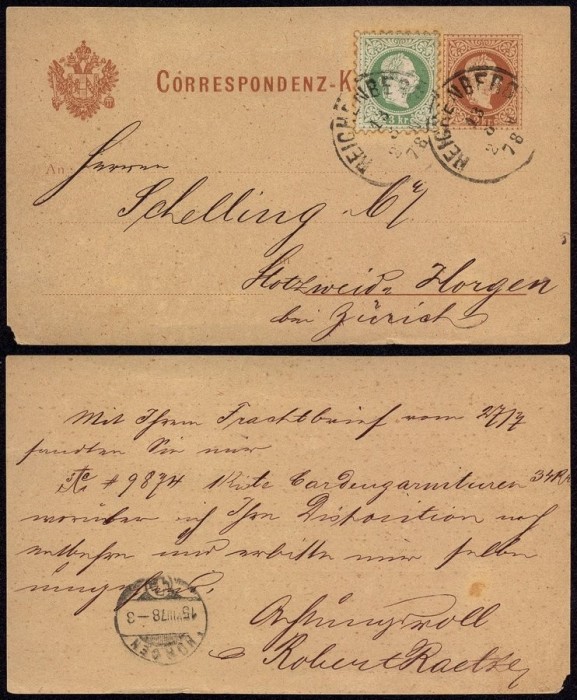 CORRESPONDENZ-K
3 kr
REICHENBERG
78
REICHENBERG
78
An
Herren
Schelling & Cie
in
Horgen
bei Zürich
Mit Ihrem Frachtbrief vom 27/7
sandten Sie mir
# 9874 1 Kiste Cardengarnituren
worüber ich Ihre Disposition noch
entbehre und erbitte mir selbe
HORGEN
15.VIII.78-3
Achtungsvoll
Robert Raetze